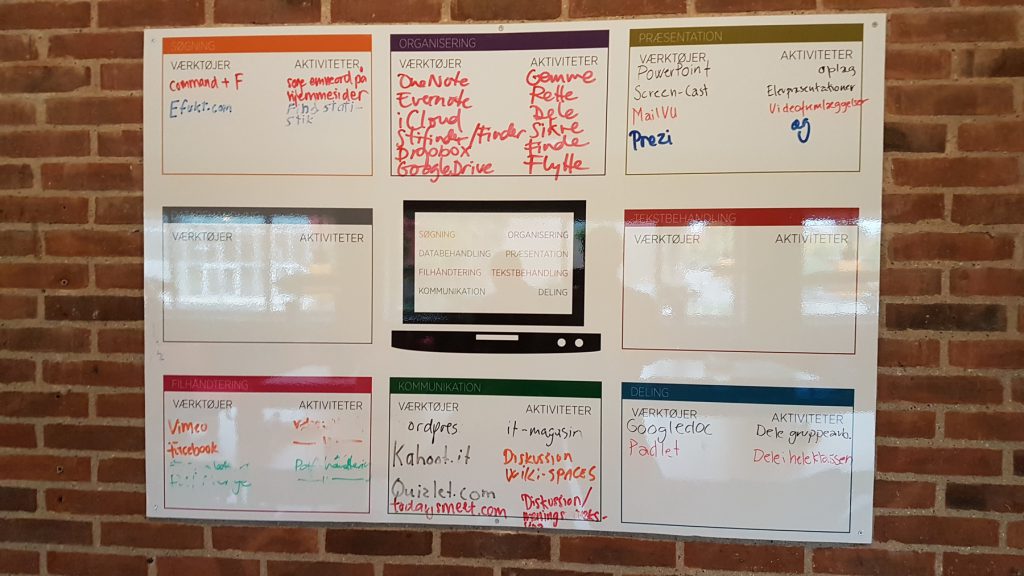 SØGNING
VÆRKTØJER AKTIVITETER
command + F
søge emneord på
hjemmesider
Efukt.com
Find stati-
stik
ORGANISERING
VÆRKTØJER AKTIVITETER
OneNote Gemme
Evernote Rette
iCloud Dele
Stifinder/finder Sikre
Dropbox Finde
GoogleDrive Flytte
PRÆSENTATION
VÆRKTØJER AKTIVITETER
PowerPoint oplæg
Screen-Cast Elevpræsentationer
MailVU Videofremlæggelser
Prezi og
VÆRKTØJER AKTIVITETER
SØGNING ORGANISERING
DATABEHANDLING PRÆSENTATION
FILHÅNDTERING TEKSTBEHANDLING
KOMMUNIKATION DELING
TEKSTBEHANDLING
VÆRKTØJER AKTIVITETER
FILHÅNDTERING
VÆRKTØJER AKTIVITETER
Vimeo
facebook
KOMMUNIKATION
VÆRKTØJER AKTIVITETER
ordpres it-magasin
Kahoot.it Diskussion
Wiki-SPACES
Quizlet.com
todaysmeet.com
Diskussion/
DELING
VÆRKTØJER AKTIVITETER
Googledoc Dele gruppearb.
Padlet Dele i hele klassen